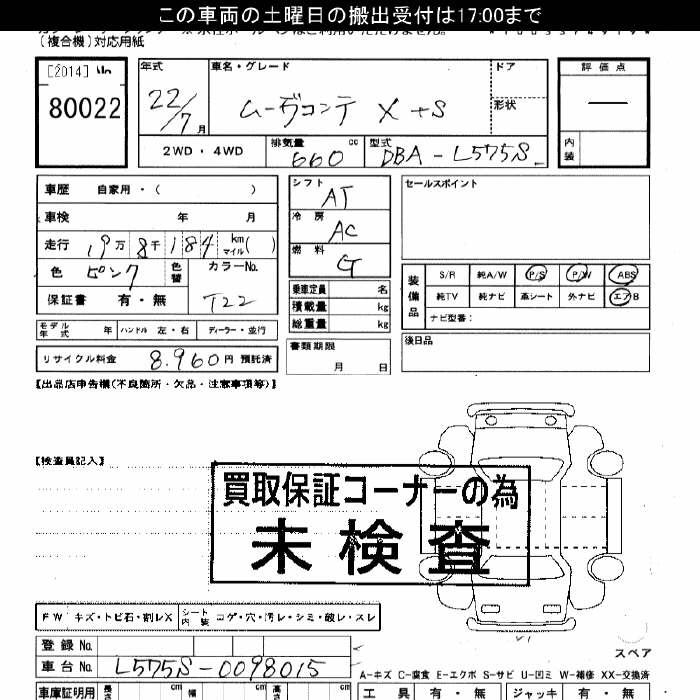 この車両の土曜日の搬出受付は17:00まで
(複合機)対応用紙
[2014] No
80022
年式
22/7月
車名・グレード
ムーヴコンテ X+S
ドア
形状
評価点
—
内装
2WD・4WD
排気量
660 cc
型式
DBA-L575S
車歴 自家用・( )
車検 年 月
走行 19万8千184 km マイル( )
色 ピンク
色替
カラーNo.
T22
保証書 有・無
シフト
AT
冷房
AC
燃料
G
乗車定員 名
積載量 kg
総重量 kg
セールスポイント
装備品
S/R 純A/W P/S P/W ABS
純TV 純ナビ 革シート 外ナビ エアB
ナビ型番:
モデル年式 年 ハンドル 左・右 ディーラー・並行
リサイクル料金 8.960円 預託済
書類期限
月 日
後日品
【出品店申告欄(不良箇所・欠品・注意事項等)】
【検査員記入】
買取保証コーナーの為
未検査
FW キズ・トビ石・割レX
シート内装 コゲ・穴・汚レ・シミ・破レ・スレ
スペア
登録No.
車台No. L575S-0098015
A-キズ C-腐食 E-エクボ S-サビ U-凹ミ W-補修 XX-交換済
車庫証明用 長さ cm 幅 cm 高さ cm
工具 有・無 ジャッキ 有・無